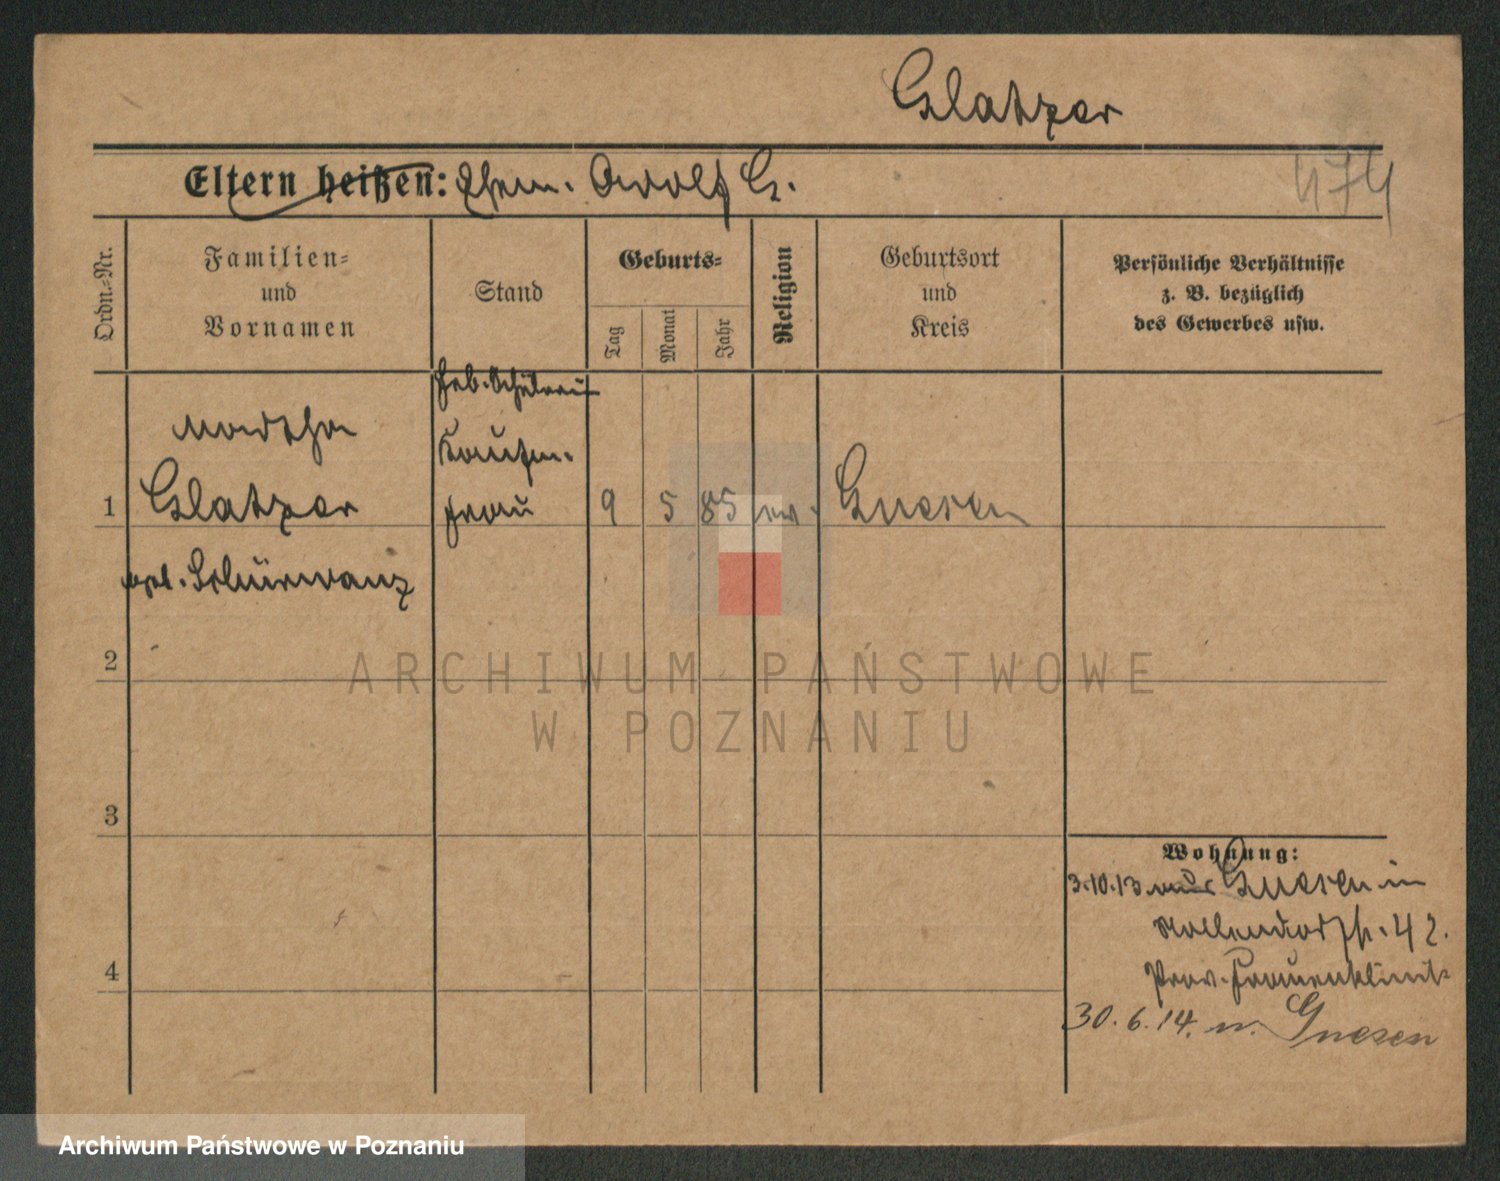 Glatzer
474
Eltern heißen: Ehem. Adolf G.
Ordn.=Nr.
Familien=
und
Vornamen
Stand
Geburts=
Tag
Monat
Jahr
Religion
Geburtsort
und
Kreis
Persönliche Verhältnisse
z. B. bezüglich
des Gewerbes usw.
Heb. Schülerin
Martha
Kaufm.
1 Glatzer frau 9 5 85 Gnesen
geb. Schürmanz
2
3
4
Wohnung:
3.10.13 aus Gnesen in
Nollendorfstr. 42.
Prov. Frauenklinik
30.6.14. n. Gnesen
ARCHIWUM PAŃSTWOWE
W POZNANIU
Archiwum Państwowe w Poznaniu